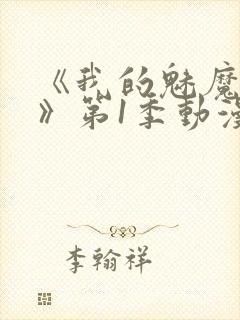 《我的魅魔
》第1季動漫
李翰祥